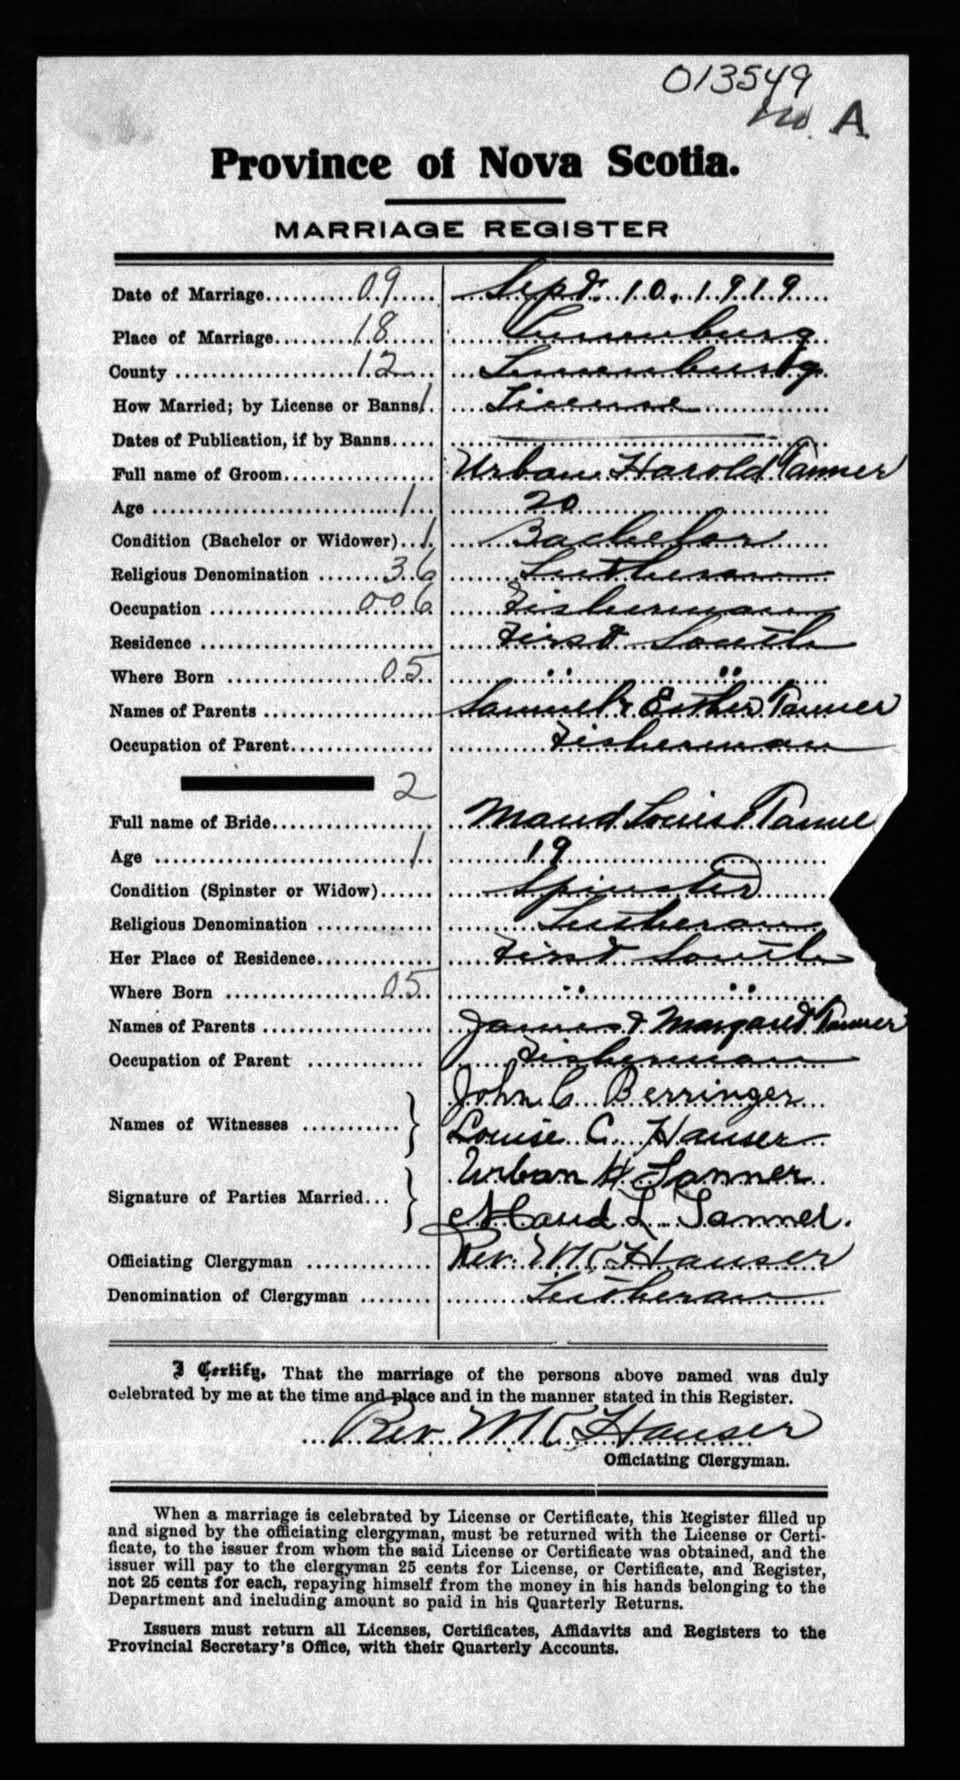 013549
No. A
Province of Nova Scotia.
MARRIAGE REGISTER
Date of Marriage..........09..... Sept. 10. 1919
Place of Marriage.........18..... Lunenburg
County ....................12.... Lunenburg
How Married; by License or Banns 1. License
Dates of Publication, if by Banns.....
Full name of Groom................. Urban Harold Tanner
Age ..........................1... 20
Condition (Bachelor or Widower)...1 Bachelor
Religious Denomination .......36 Lutheran
Occupation ..................006 Fisherman
Residence .......................... First South
Where Born ..................05.. " "
Names of Parents .................... Samuel & Esther Tanner
Occupation of Parent................. Fisherman
2
Full name of Bride................... Maud Louise Tanne
Age ..........................1. 19
Condition (Spinster or Widow)...... Spinster
Religious Denomination ............. Lutheran
Her Place of Residence.............. First South
Where Born ..................05.. " "
Names of Parents .................... James & Margaret Tanner
Occupation of Parent ............. Fisherman
John C. Berringer
Names of Witnesses ...........}
Louise C. Hauser
Urban H Tanner
Signature of Parties Married...}
Maud L Tanner.
Officiating Clergyman .............. Rev. WK Hauser
Denomination of Clergyman ........ Lutheran
I Certify, That the marriage of the persons above named was duly
celebrated by me at the time and place and in the manner stated in this Register.
Rev. WK Hauser
Officiating Clergyman.
When a marriage is celebrated by License or Certificate, this Register filled up
and signed by the officiating clergyman, must be returned with the License or Certi-
ficate, to the issuer from whom the said License or Certificate was obtained, and the
issuer will pay to the clergyman 25 cents for License, or Certificate, and Register,
not 25 cents for each, repaying himself from the money in his hands belonging to the
Department and including amount so paid in his Quarterly Returns.
Issuers must return all Licenses, Certificates, Affidavits and Registers to the
Provincial Secretary's Office, with their Quarterly Accounts.